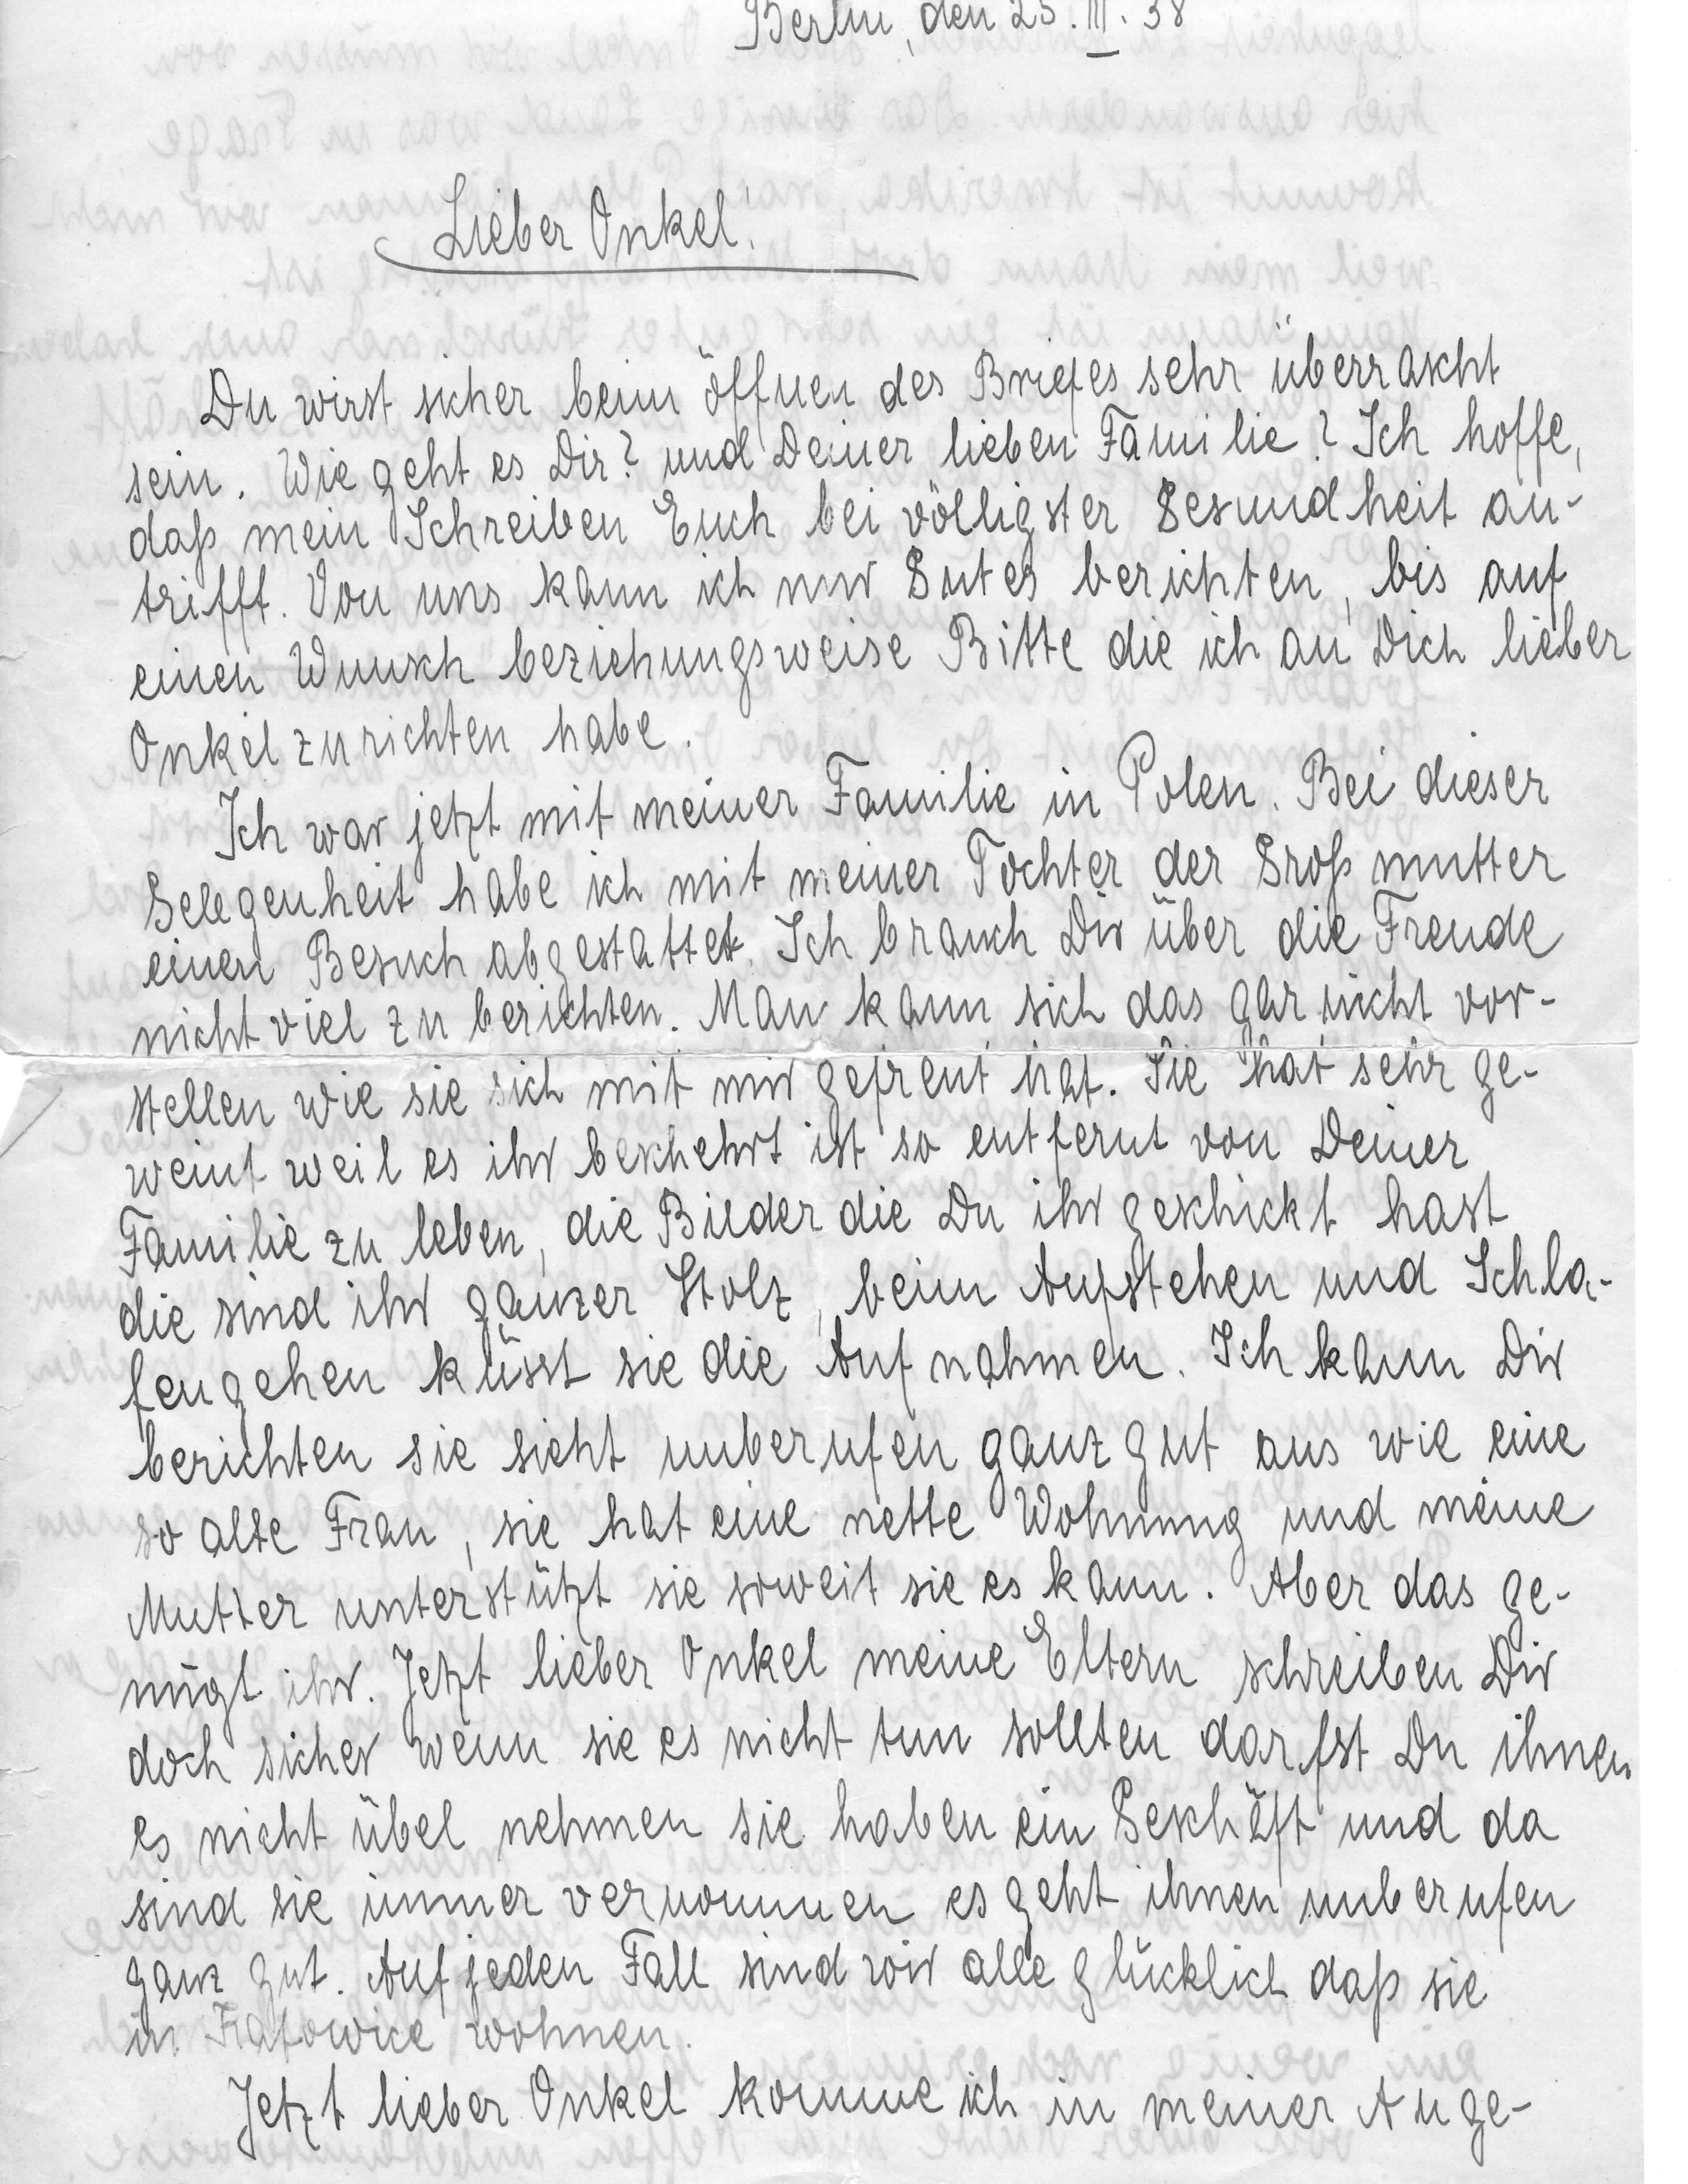 Berlin, den 25. III. 38
Lieber Onkel!
Du wirst sicher beim öffnen des Briefes sehr überrascht
sein. Wie geht es Dir? und Deiner lieben Familie? Ich hoffe,
daß mein Schreiben Euch bei völligster Gesundheit an-
trifft. Von uns kann ich nur Gutes berichten, bis auf
einen Wunsch beziehungsweise Bitte die ich an Dich lieber
Onkel zu richten habe.
Ich war jetzt mit meiner Familie in Polen. Bei dieser
Gelegenheit habe ich mit meiner Tochter der Großmutter
einen Besuch abgestattet. Ich brauch Dir über die Freude
nicht viel zu berichten. Man kann sich das gar nicht vor-
stellen wie sie sich mit mir gefreut hat. Sie hat sehr ge-
weint weil es ihr beschehrt ist so entfernt von Deiner
Familie zu leben, die Bilder die Du ihr geschickt hast
die sind ihr ganzer Stolz, beim Aufstehen und Schla-
fengehen küsst sie die Aufnahmen. Ich kann Dir
berichten sie sieht unberufen ganz gut aus wie eine
so alte Frau, sie hat eine nette Wohnung und meine
Mutter unterstützt sie soweit sie es kann. Aber das ge-
nügt ihr. Jetzt lieber Onkel meine Eltern schreiben Dir
doch sicher wenn sie es nicht tun sollten darfst Du ihnen
es nicht übel nehmen sie haben ein Geschäft und da
sind sie immer vernommen es geht ihnen unberufen
ganz gut. Auf jeden Fall sind wir alle glücklich daß sie
in Katowice wohnen.
Jetzt lieber Onkel komme ich in meiner Ange-